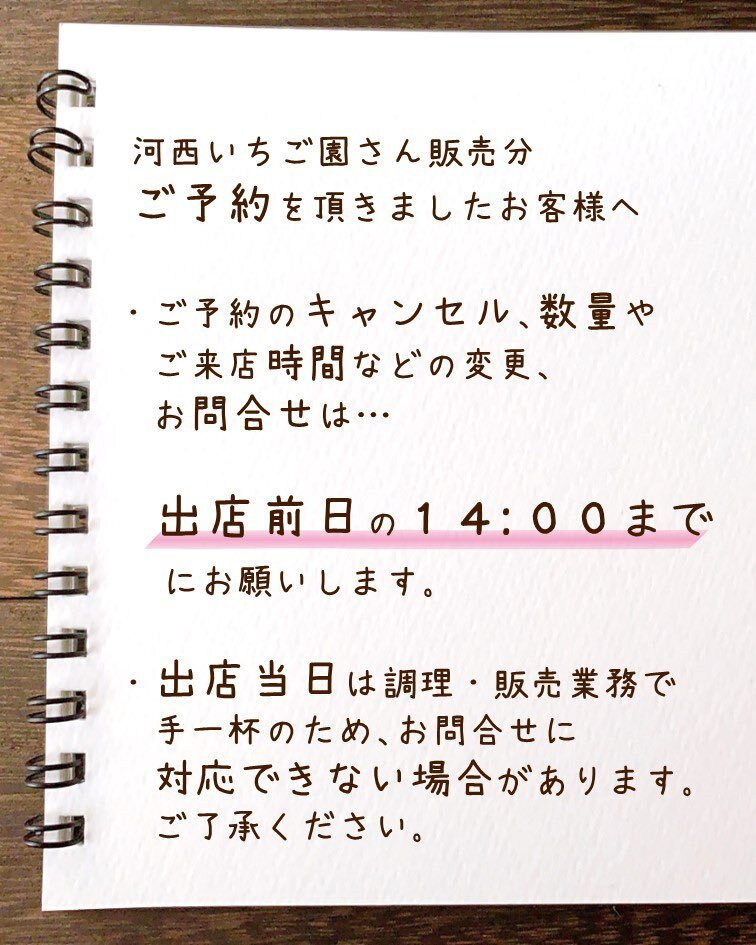 河西いちご園さん販売分
ご予約を頂きましたお客様へ
・ご予約のキャンセル、数量や
ご来店時間などの変更、
お問合せは…
出店前日の１４:００まで
にお願いします。
・出店当日は調理・販売業務で
手一杯のため、お問合せに
対応できない場合があります。
ご了承ください。